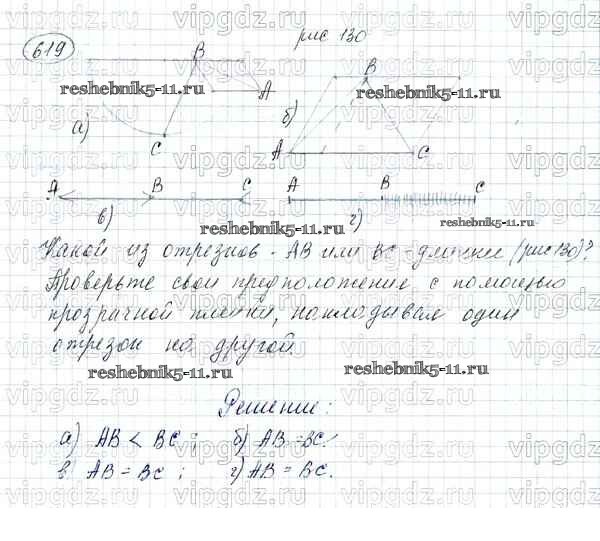 619
рис 130
B
A
а)
C
B
б)
A
C
A B C
в)
A B C
г)
Какой из отрезков - AB или BC - длиннее (рис 130)?
Проверьте свои предположения с помощью
прозрачной пленки, накладывая один
отрезок на другой.
Решение:
а) AB < BC ; б) AB = BC.
в) AB = BC ; г) AB = BC.
reshebnik5-11.ru
reshebnik5-11.ru
reshebnik5-11.ru
reshebnik5-11.ru
reshebnik5-11.ru
reshebnik5-11.ru
vipgdz.ru